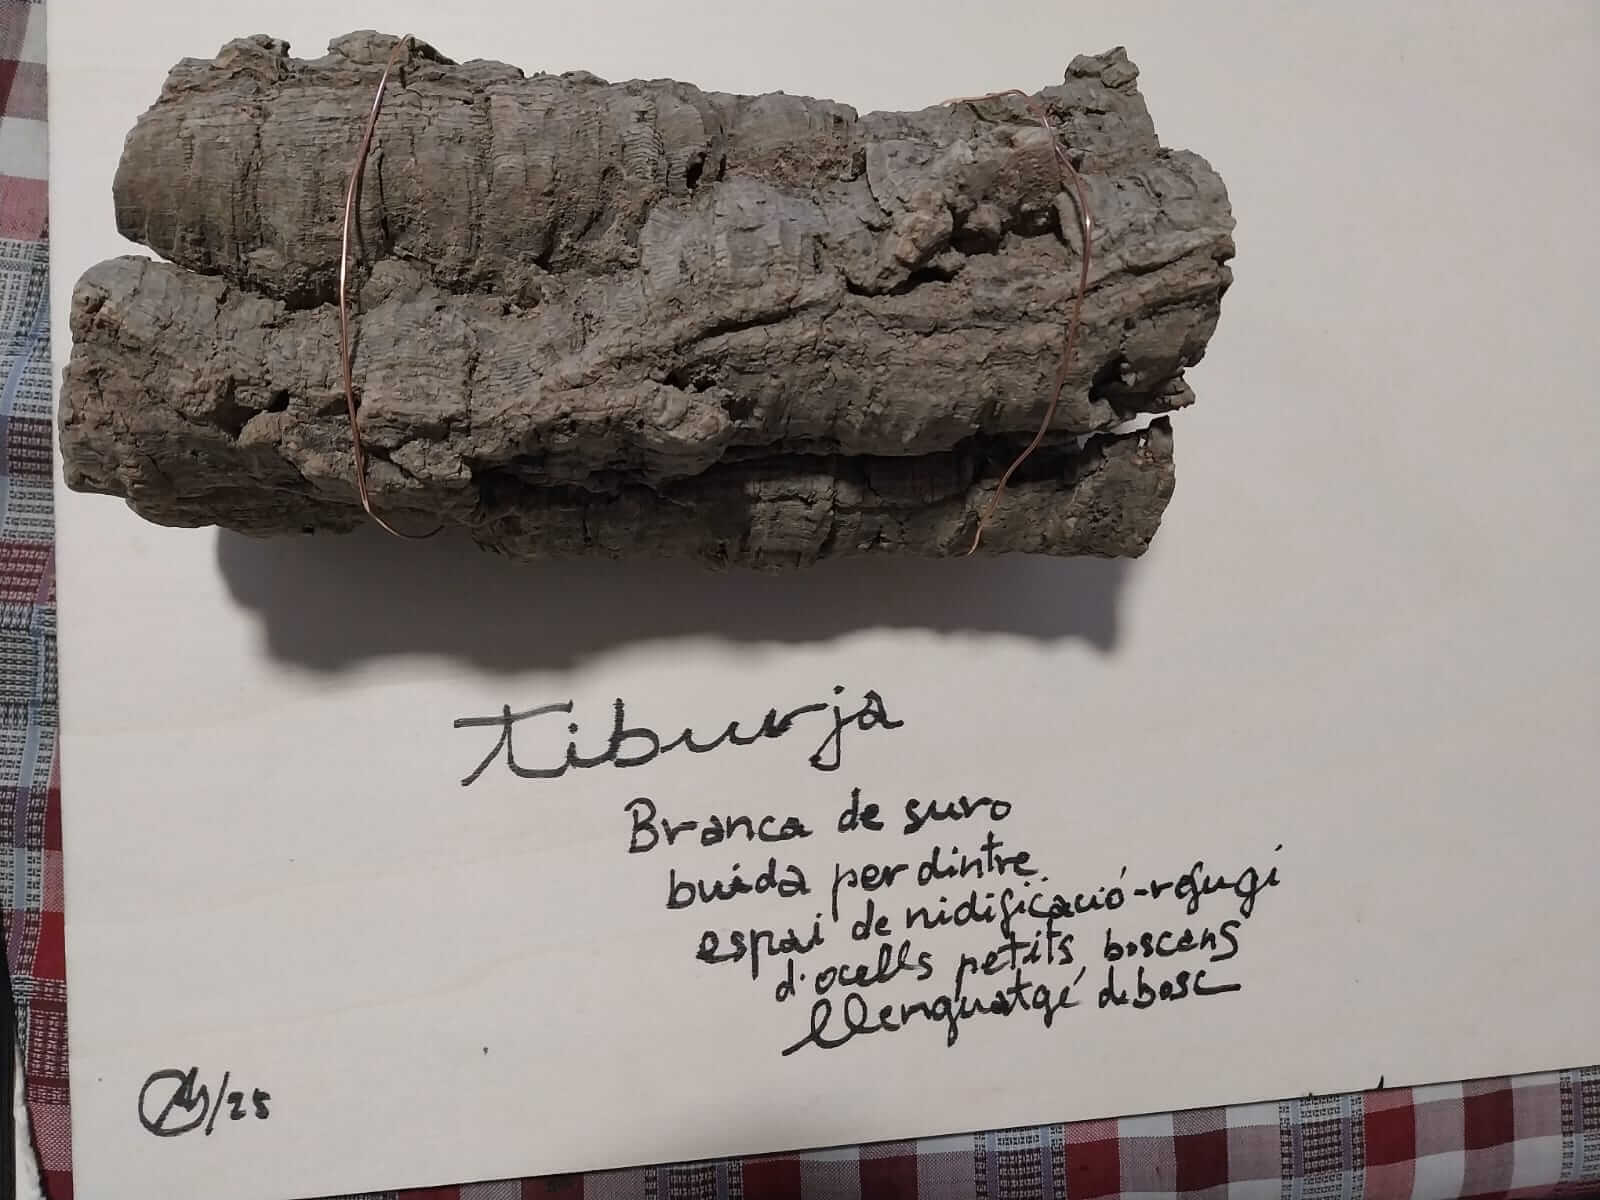 tiburja
Branca de suro
buida per dintre
espai de nidificació-refugi
d'ocells petits boscans
llenguatgé de bosc
/25